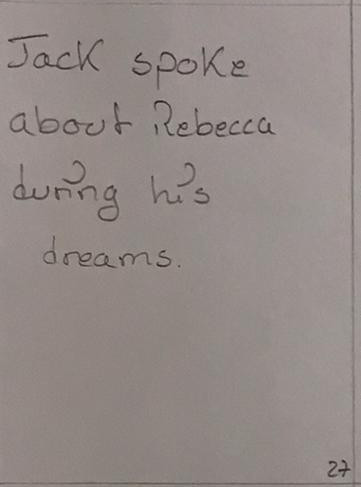 Jack spoke
about Rebecca
during his
dreams.
27